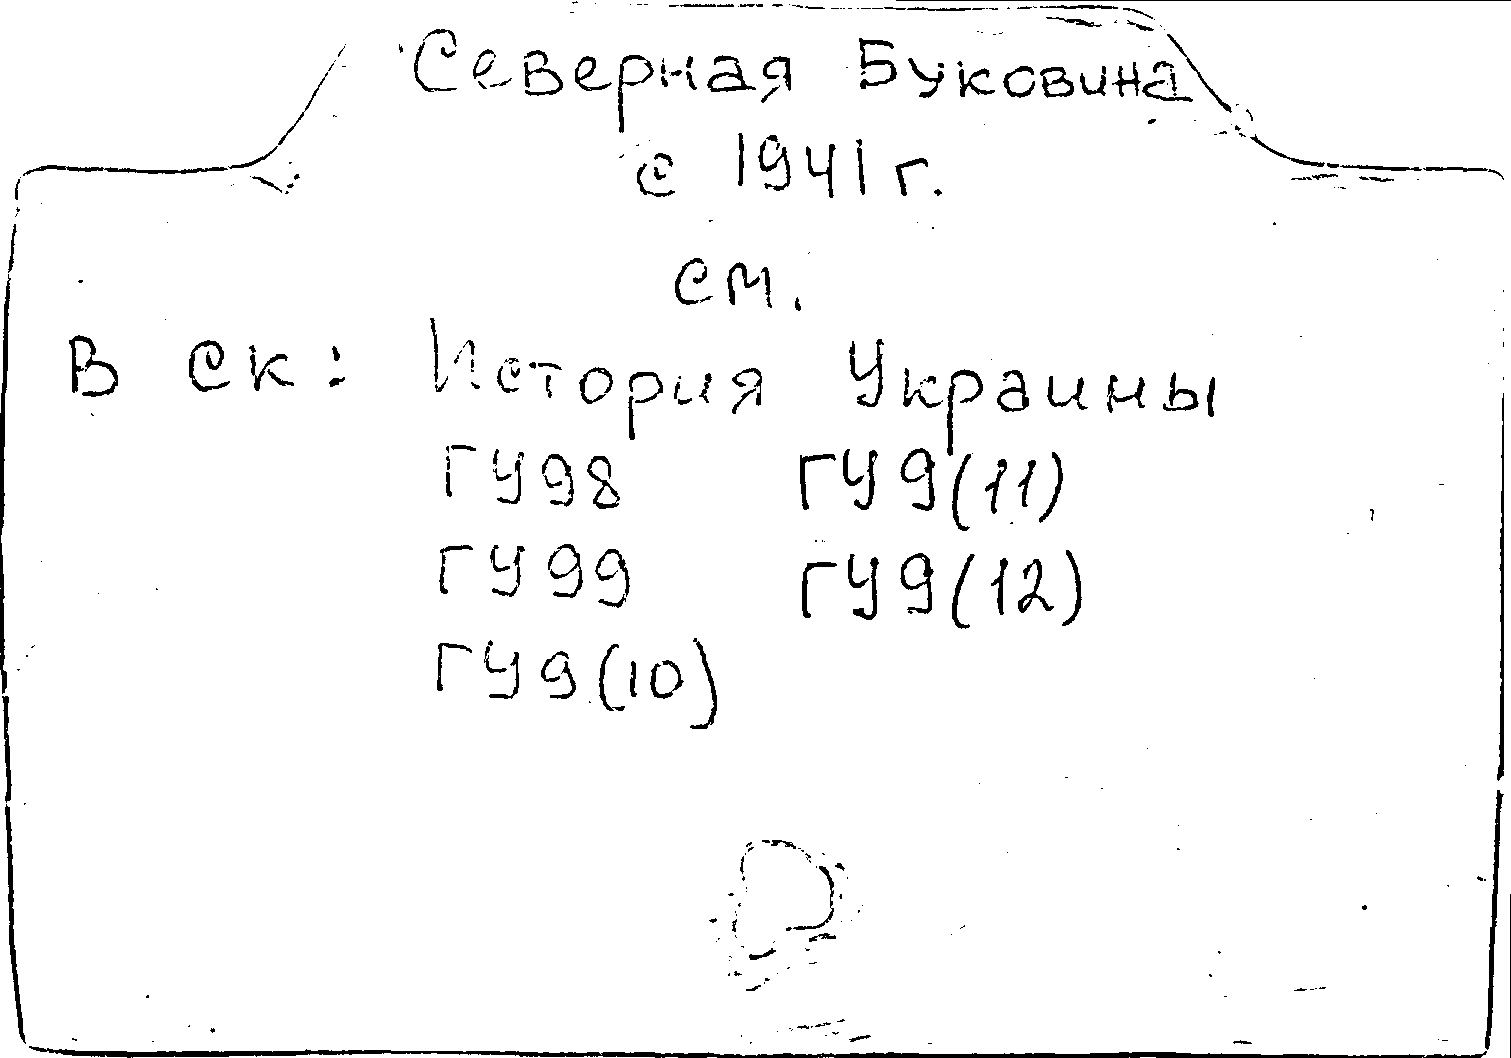 Северная Буковина
с 1941 г.
см.
В ск: История Украины
ГУ98 ГУ9(11)
ГУ99 ГУ9(12)
ГУ9(10)